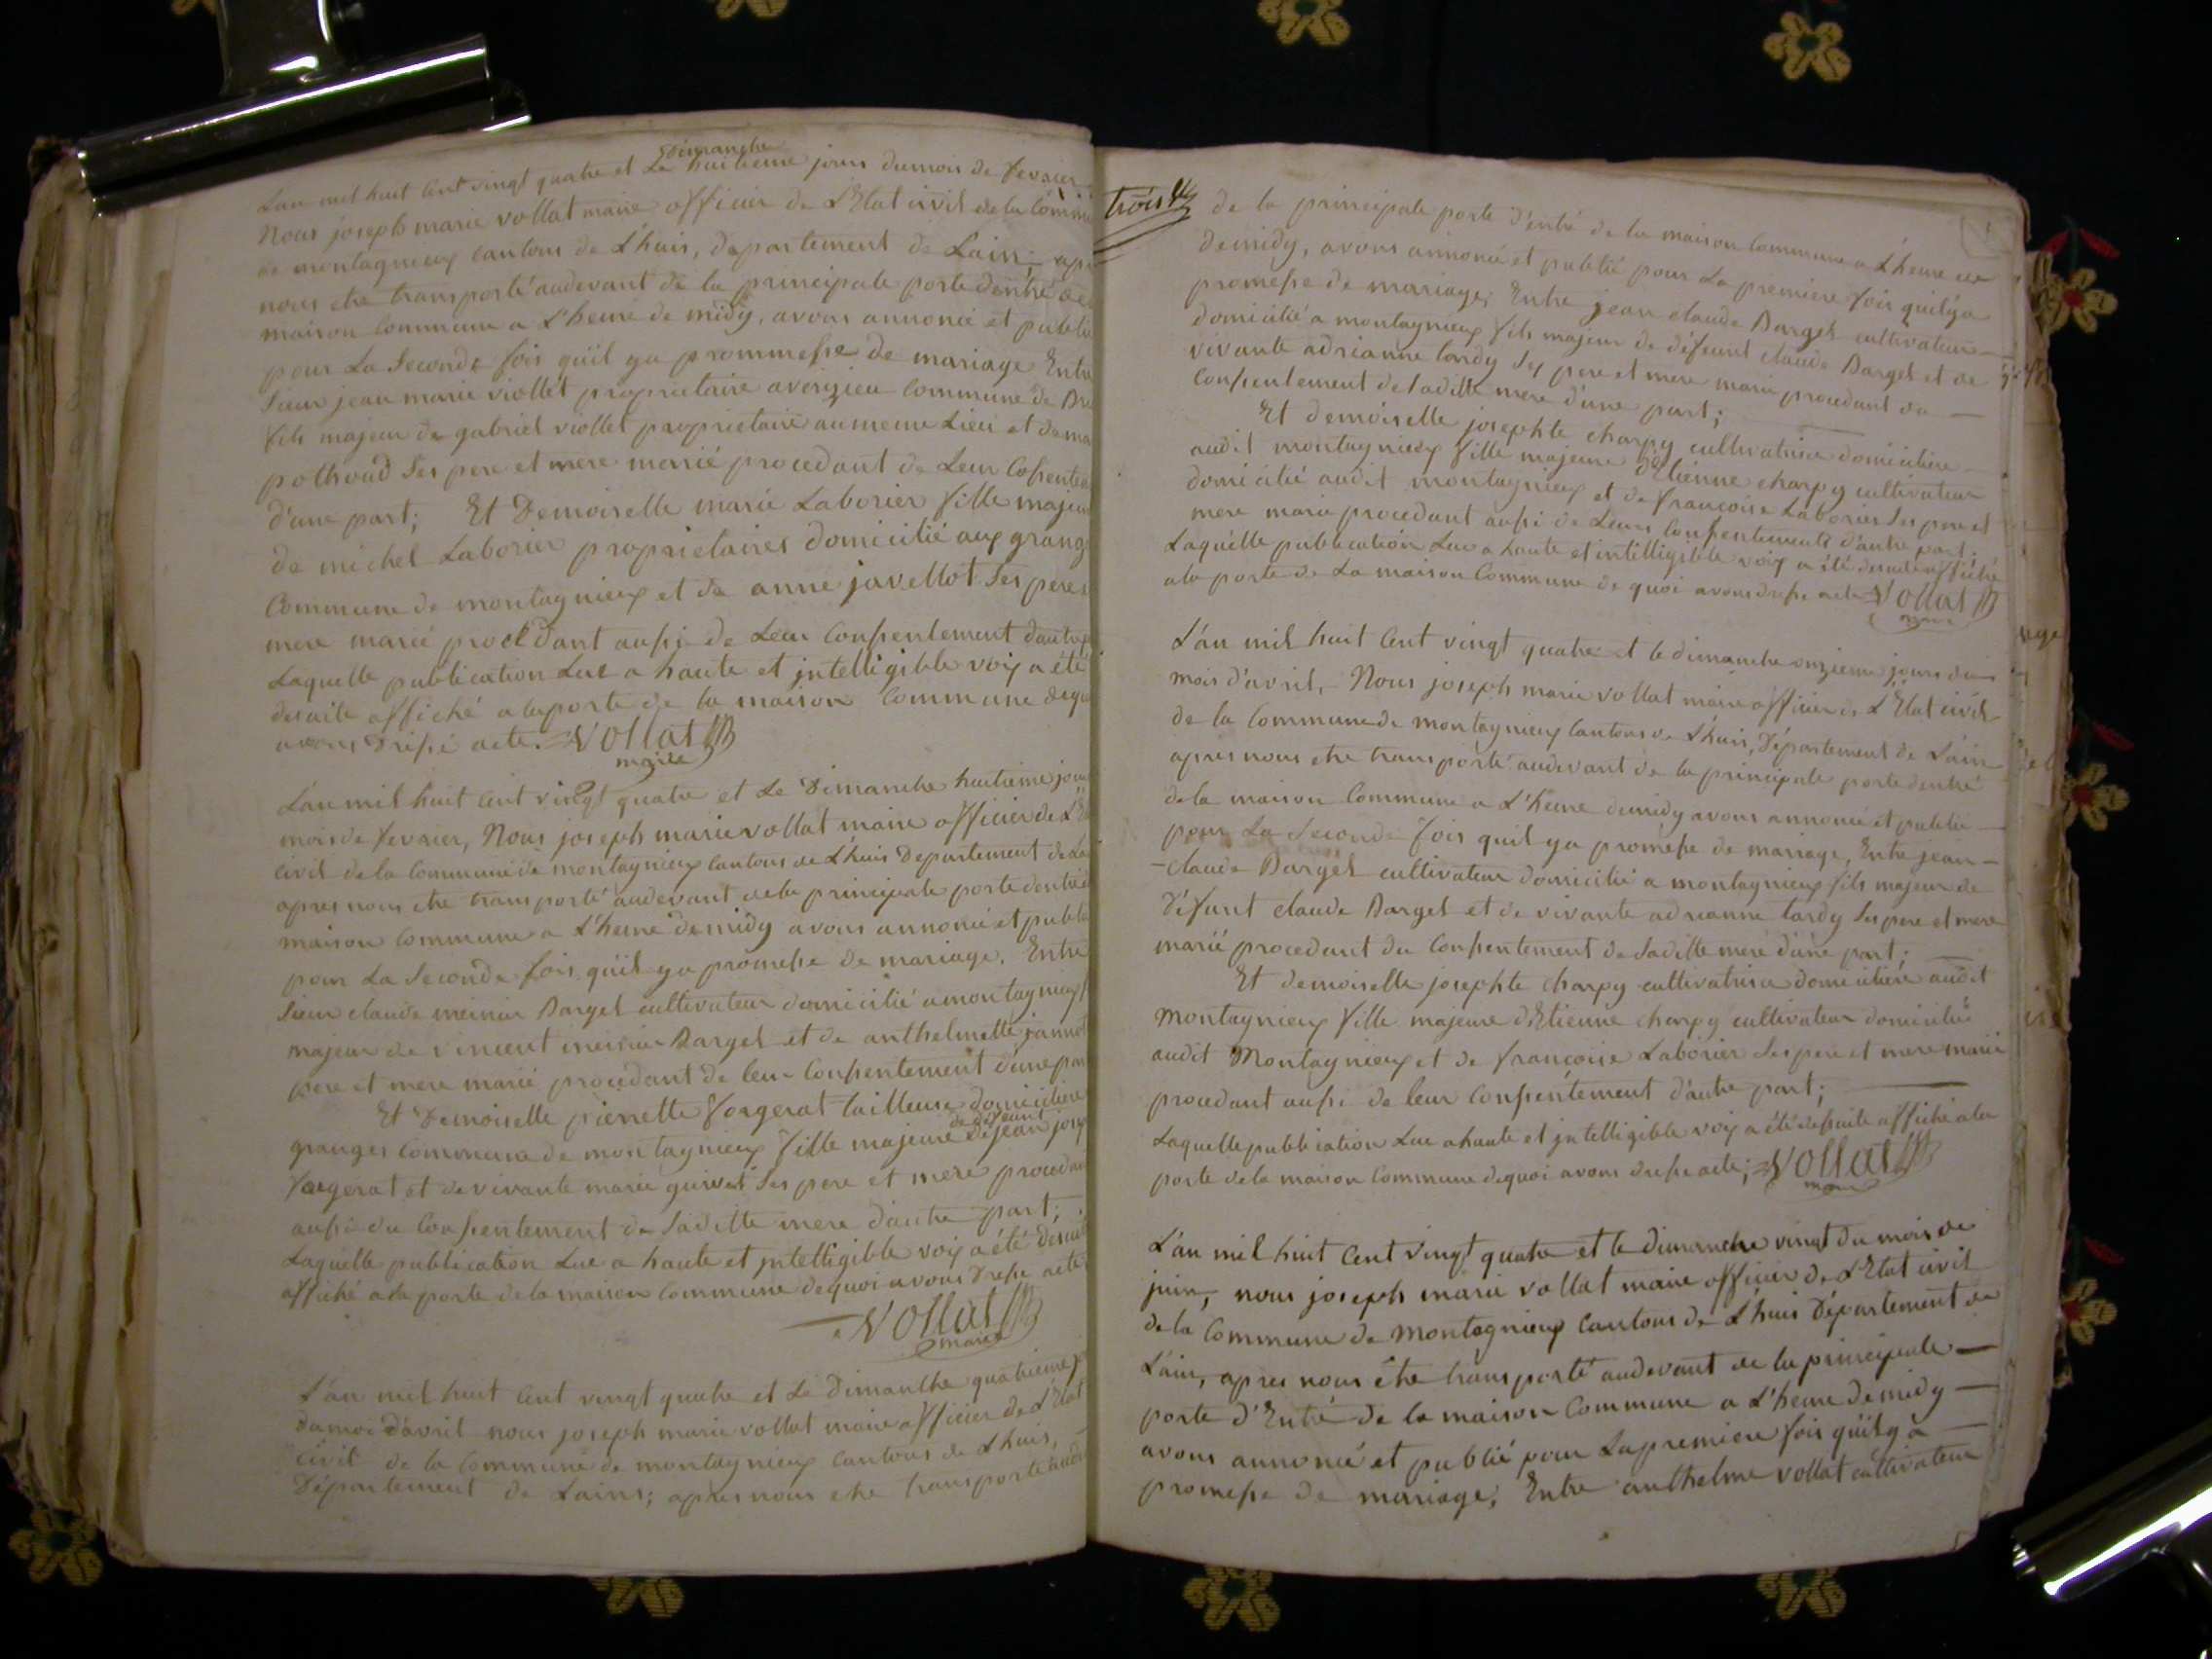 dimanche
L'an mil huit Cent vingt quatre et Le huitieme jours dumois de fevrier
Nous joseph marie vollat maire officier de L'Etat civil de la Commu
de montagnieux cantons de L'huis, departement de Lain; apr
nous etre transporté audevant de la principale porte dentré de
maison Commune a L'heure de midy, avons annoncé et publié
pour La Seconde fois quil ya prommesse de mariage Entre
Sieur jean marie viollet proprietaire a Commune de
fils majeur de gabriel viollet proprietaire au meme Lieu et de ma
Ses pere et mere marié procedant de Leur Cosente
d'une part; Et Demoiselle marie Laborier fille majeu
de michel Laborier proprietaires domicilié aux grang
Commune de montagnieux et de anne javellot Ses pere
mere marié procedant aussi de Leur Consentement dautre
Laquelle publication Lue a haute et jntelligible voix a été
desuite affiché a la porte de la maison Commune dequ
avons dressé acte. Vollat
maire
L'an mil huit Cent vingt quatre et Le Dimanche huitieme jou
mois de fevrier, Nous joseph marie vollat maire officier de L'E
civil de la Commune de montagnieux Cantons de L'huis Departement de La
apres nous etre transporté audevant de la principale porte dentré d
maison Commune a L'heure de midy avons annoncé et publié
pour La Seconde fois quil ya promesse de mariage. Entre
Sieur claude meinier Barget cultivateur domicilié a montagnieux
majeur de vincent meinier Barget et de anthelmette
pere et mere marié procedant de leur Consentement d'une par
Et Demoiselle pierrette forgerat tailleuse domiciliere
de défeunt
granges Commune de montagnieux fille majeure de jean jose
forgerat et de vivante marie Ses pere et mere procedan
aussi du Consentement de Saditte mere d'autre part;
Laquelle publication Lue a haute et jntelligible voix a été desuit
affiché a la porte de la maison Commune dequoi avons Dressé acte
Vollat
maire
L'an mil huit Cent vingt quatre et Le Dimanche quatrieme j
du moi d'avril nous joseph marie vollat maire officier de L'Etat
Civil de la Commune de montagnieux Cantons de L'huis,
Département de Lains; apres nous etre transporté aude
trois
de la principale porte d'entré de la maison Commune a L'heure de
de midy, avons annoncé et publié pour La premiere fois quil ya
promesse de mariage; Entre jean claude Barget cultivateur
domicilié a montagnieux fils majeur de défeunt claude Barget et de
vivante adrianne tardy Ses pere et mere marié procedant du
Consentement de Laditte mere d'une part;
Et demoiselle josephte charpy cultivatrice domiciliere
audit montagnieux fille majeure d'Etienne charpy cultivateur
domicilié audit montagnieux et de françoise Laborier Ses pere et
mere marié procedant aussi de Leurs Consentements d'autre part;
Laquelle publication Lue a haute et intelligible voix a été desuite affiché
a la porte de La maison Commune de quoi avons dressé acte Vollat
L'an mil huit Cent vingt quatre et le dimanche onzieme jours du
mois d'avril, Nous joseph marie vollat maire officier de L'Etat civil
de la Commune de montagnieux Cantons de L'huis, Département de L'ain
apres nous etre transporté audevant de la principale porte dentré
de la maison Commune a L'heure de midy avons annoncé et publié
pour La Seconde fois quil ya promesse de mariage, Entre jean
claude Barget cultivateur domicilié a montagnieux fils majeur de
défunt claude Barget et de vivante adrianne tardy Ses pere et mere
marié procedant du Consentement de Saditte mere d'une part;
Et demoiselle josephte charpy cultivatrice domiciliere audit
montagnieux fille majeure d'Etienne charpy cultivateur domicilié
audit Montagnieux et de françoise Laborier Ses pere et mere marié
procedant aussi de leur Consentement d'autre part;
Laquelle publication Lue a haute et jntelligible voix a été desuite affiché a la
porte de la maison Commune dequoi avons dressé acte; Vollat
maire
L'an mil huit Cent vingt quatre et le dimanche vingt du mois de
juin, nous joseph marie vollat maire officier de L'Etat civil
de la Commune de Montagnieux Cantons de L'huis Département de
L'ain, apres nous être transporté audevant de la principale
porte d'Entré de la maison Commune a L'heure de midy
avons annoncé et publié pour La premiere fois quil y a
promesse de mariage; Entre anthelme vollat cultivateur